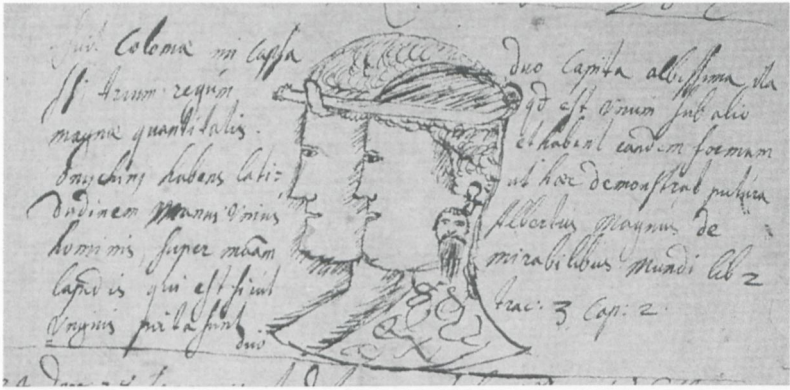 Vidi Coloniæ in Capsa
SS trium regum
magnæ quantitatis.
Onychinũ habens lati=
tudinem manus unius
hominis, super mãam
lapidis qui est sicut
unguis picta sunt
duo
duo Capita albissima ita
qd est unum sub alio
et habent eandem formam
ut hæc demonstrat pictura
Albertus magnus de
mirabilibus mundi lib 2
trac: 3 Cap: 2.